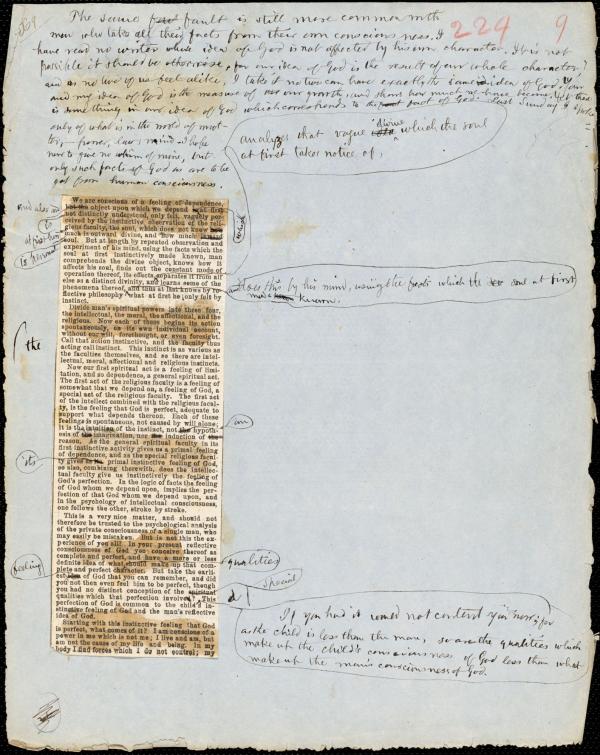 224 9
The same fault is still more common with
men who take all their facts from their own consciousness. I
have read no writer whose idea of God is not affected by his own character. It is not
possible it should be otherwise, for our idea of God is the result of our whole character,
and as no two of us feel alike, I take it no two can have exactly the same idea of God
and my idea of God is the measure of my growth, and shows how much
is something in our idea of God which corresponds to the fact of God. Last Sunday I
only of what is in the world of mat-
ter, power, law, mind. I hope
not to give no whim of mine, but
only such facts of God as are to be
got from human consciousness.
analyzes that vague divine which the soul
at first takes notice of,
We are conscious of a feeling of dependence,
but the object upon which we depend is at first
not distinctly understood, only felt, vaguely per-
ceived by the instinctive observation of the reli-
gious faculty, the soul, which does not know how
much is outward divine, and how much inward
soul. But at length by repeated observation and
experiment of his mind, using the facts which the
soul at first instinctively made known, man
comprehends the divine object, knows how it
affects his soul, finds out the constant mode of
operation thereof, its effects, separates it from all
else as a distinct divinity, and learns some of the
phenomena thereof, and thus at last knows by re-
flective philosophy what at first he only felt by
instinct.
does this by his mind, using the facts which the soul at first
made known.
Divide man's spiritual powers into these four,
the intellectual, the moral, the affectional, and the
religious. Now each of these begins its action
spontaneously, on its own individual account,
without our will, forethought, or even foresight.
Call that action instinctive, and the faculty thus
acting call instinct. This instinct is as various as
the faculties themselves, and so there are intel-
lectual, moral, affectional and religious instincts.
the
Now our first spiritual act is a feeling of limi-
tation, and so dependence, a general spiritual act.
The first act of the religious faculty is a feeling of
somewhat that we depend on, a feeling of God, a
special act of the religious faculty. The first act
of the intellect combined with the religious facul-
ty, is the feeling that God is perfect, adequate to
support what depends thereon. Each of these
feelings is spontaneous, not caused by will alone;
it is the intuition of the instinct, not the hypoth-
esis of the imagination, nor the induction of the
reason. As the general spiritual faculty in its
first instinctive activity gives us a primal feeling
of dependence, and as the special religious facul-
ty gives us its primal instinctive feeling of God,
so also, combining therewith, does the intellec-
tual faculty give us instinctively the feeling of
God's perfection. In the logic of facts the feeling
of God whom we depend upon, implies the per-
fection of that God whom we depend upon, and
in the psychology of intellectual consciousness,
one follows the other, stroke by stroke.
an
its
This is a very nice matter, and should not
therefore be trusted to the psychological analysis
of the private consciousness of a single man, who
may easily be mistaken. But is not this the ex-
perience of you all? In your present reflective
consciousness of God you conceive thereof as
complete and perfect, and have a more or less
definite idea of what should make up that com-
plete and perfect character. But take the earli-
est idea of God that you can remember, and did
you not then even feel him to be perfect, though
you had no distinct conception of the spiritual
qualities which that perfection involved? This
perfection of God is common to the child's in-
stinctive feeling of God and the man's reflective
idea of God.
feeling
qualities
special
d
If you had it would not content you now; for
as the child is less than the man, so are the qualities which
make up the child's consciousness of God less than what
make up the man's consciousness of God.
Starting with this instinctive feeling that God
is perfect, what comes of it? I am conscious of a
power in me which is not me; I live and am, but
am not the cause of my life and being. In my
body I find forces which I do not control; my